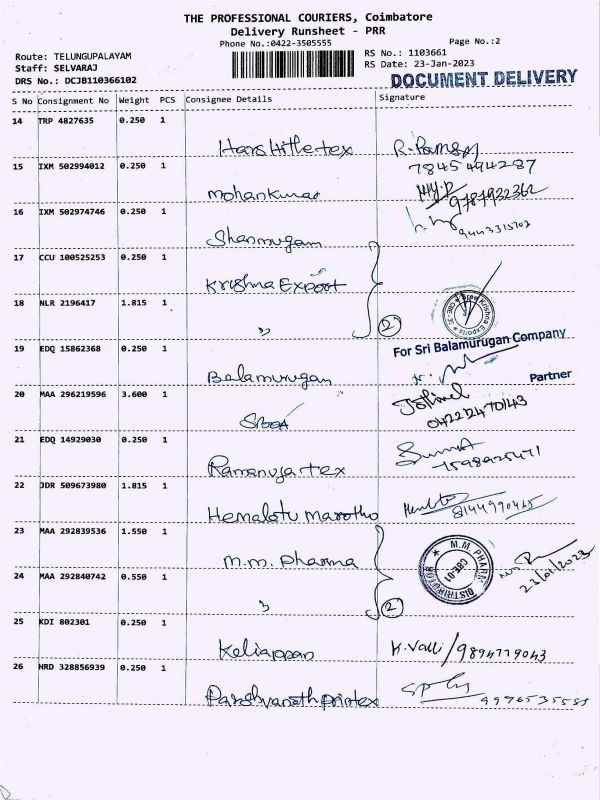 THE PROFESSIONAL COURIERS, Coimbatore
Delivery Runsheet - PRR
Phone No.:0422-3505555
Page No.:2
Route: TELUNGUPALAYAM
Staff: SELVARAJ
DRS No.: DCJB110366102
RS No.: 1103661
RS Date: 23-Jan-2023
DOCUMENT DELIVERY
S No Consignment No Weight PCS Consignee Details Signature
14 TRP 4827635 0.250 1
7845494287
15 IXM 502994012 0.250 1
Mohankumar 9787932362
16 IXM 502974746 0.250 1
Shanmugam 9443315703
17 CCU 100525253 0.250 1
Krishna Export
18 NLR 2196417 1.815 1
" 2
Sree Krishna Exports
19 EDQ 15862368 0.250 1
Balamurugan
For Sri Balamurugan Company
Partner
20 MAA 296219596 3.600 1
21 EDQ 14929030 0.250 1
Ramanuja tex
22 JDR 509673980 1.815 1
8144990465
23 MAA 292839536 1.550 1
M.M. Pharma
M.M. PHARMA
DISTRIBUTOR
CBE-01
24 MAA 292840742 0.550 1
" 2
25 KDI 802301 0.250 1
Keliappan K. Valli / 9894779043
26 HRD 328856939 0.250 1
Parshvanath printex